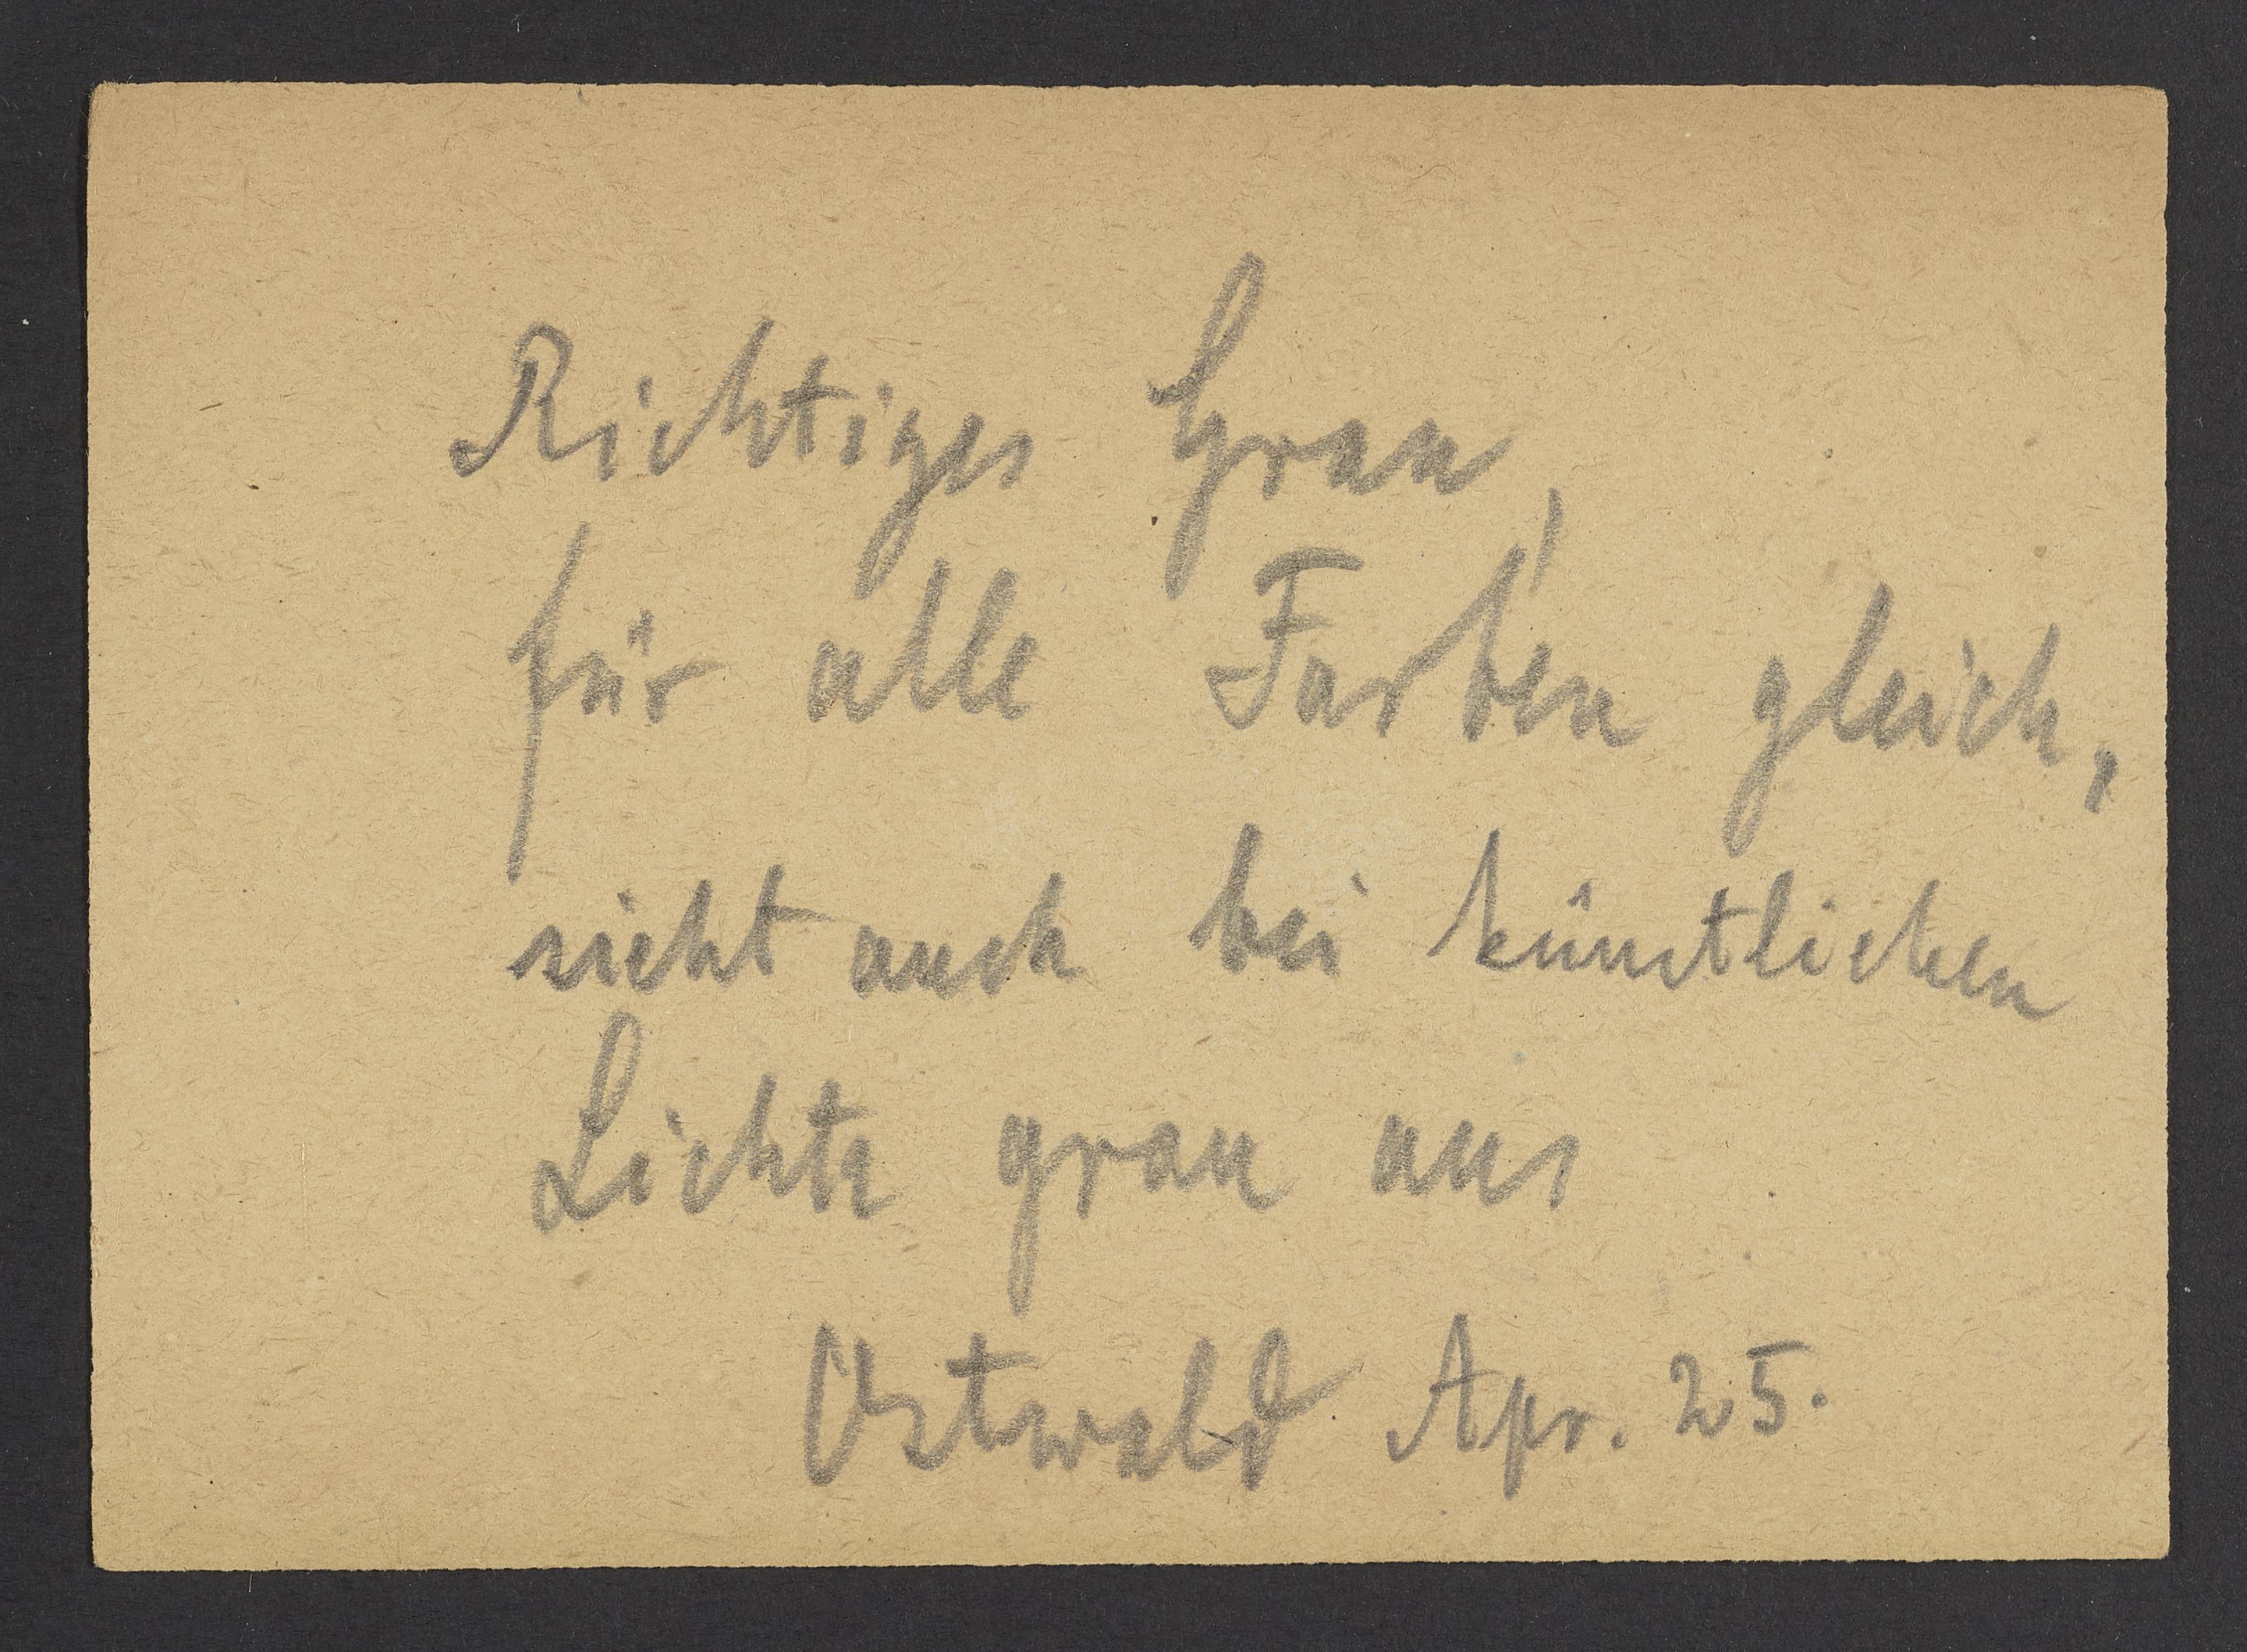 Richtiges Grau,
für alle Farben gleich,
sieht auch bei künstlichen
Lichte grau aus
Ostwald Apr. 25.